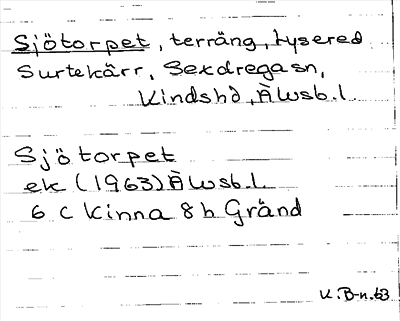 Sjötorpet, terräng, Lysered
Surtekärr, Sexdregasn,
Kindshd, Älvsb.l.
Sjötorpet
ek (1963) Älvsb.l.
6 C Kinna 8 h Gränd
K.B-n.63